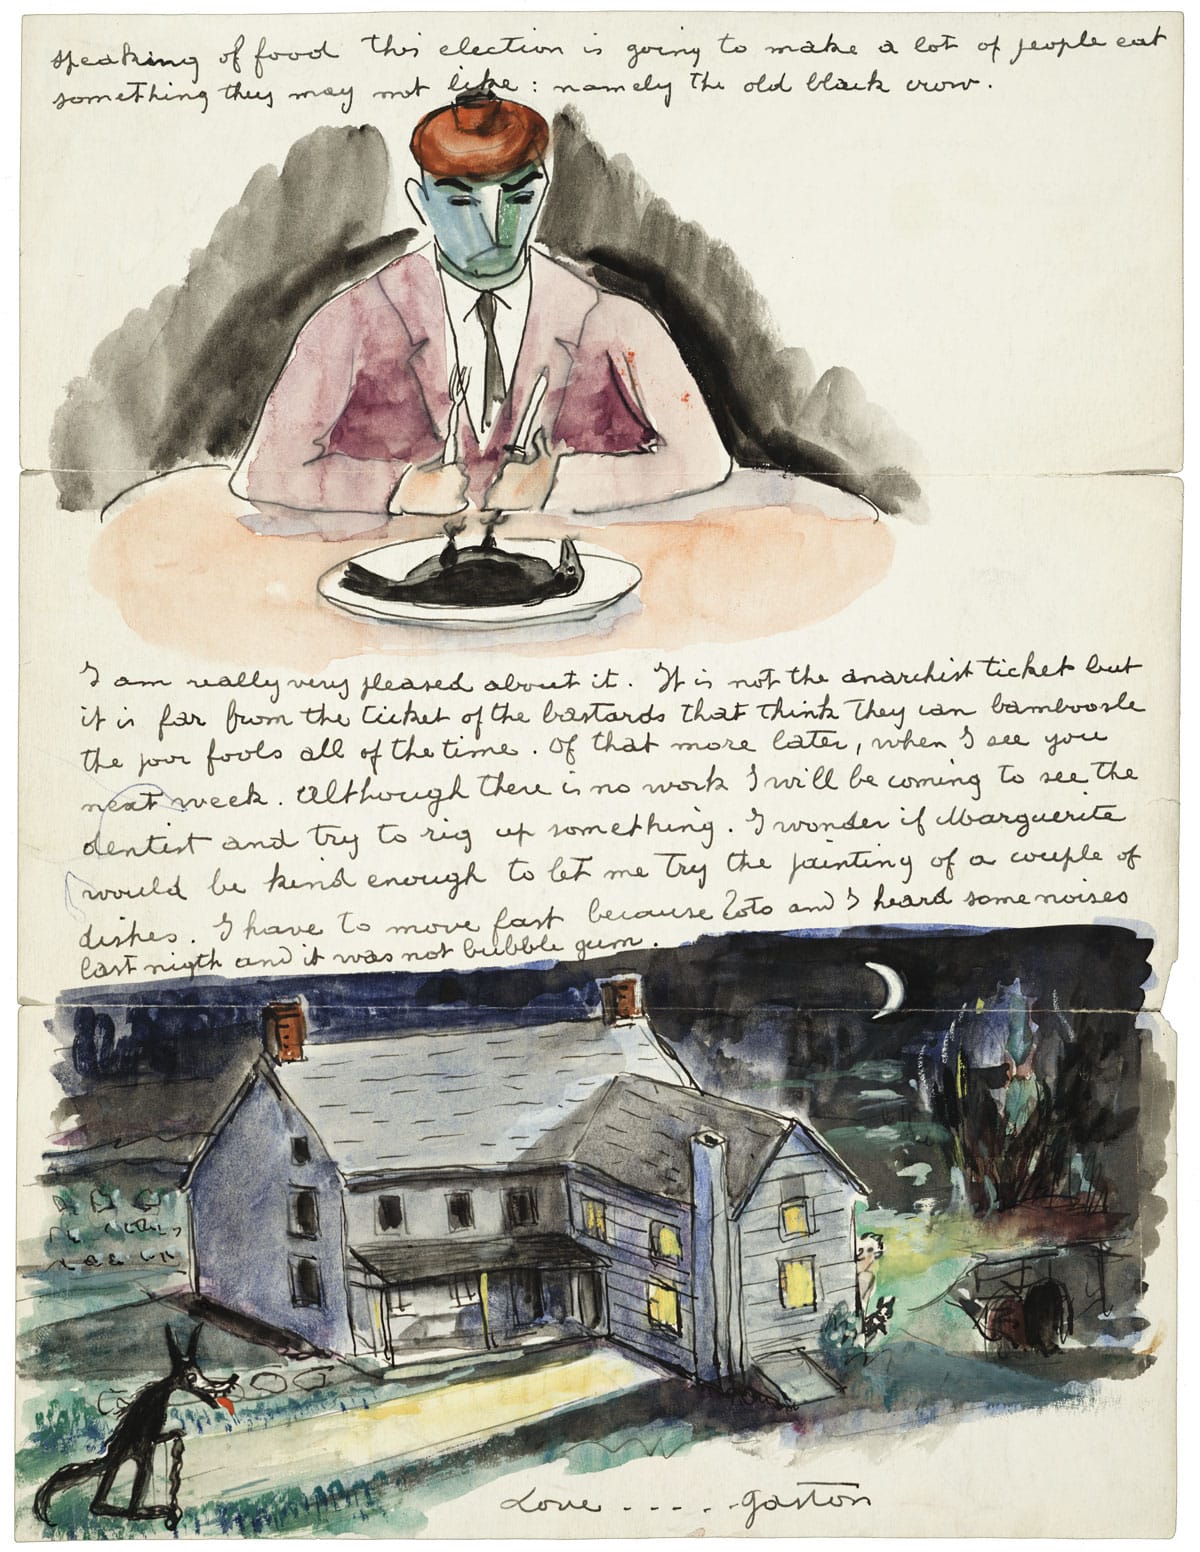 speaking of food this election is going to make a lot of people eat
something they may not like : namely the old black crow.
I am really very pleased about it. It is not the anarchist ticket but
it is far from the ticket of the bastards that think they can bamboosle
the poor fools all of the time. Of that more later, when I see you
next week. Although there is no work I will be coming to see the
dentist and try to rig up something. I wonder if Marguerite
would be kind enough to let me try the painting of a couple of
dishes. I have to move fast because Zoto and I heard some noises
last nigth and it was not bubble gum.
Love - - - - - Gaston